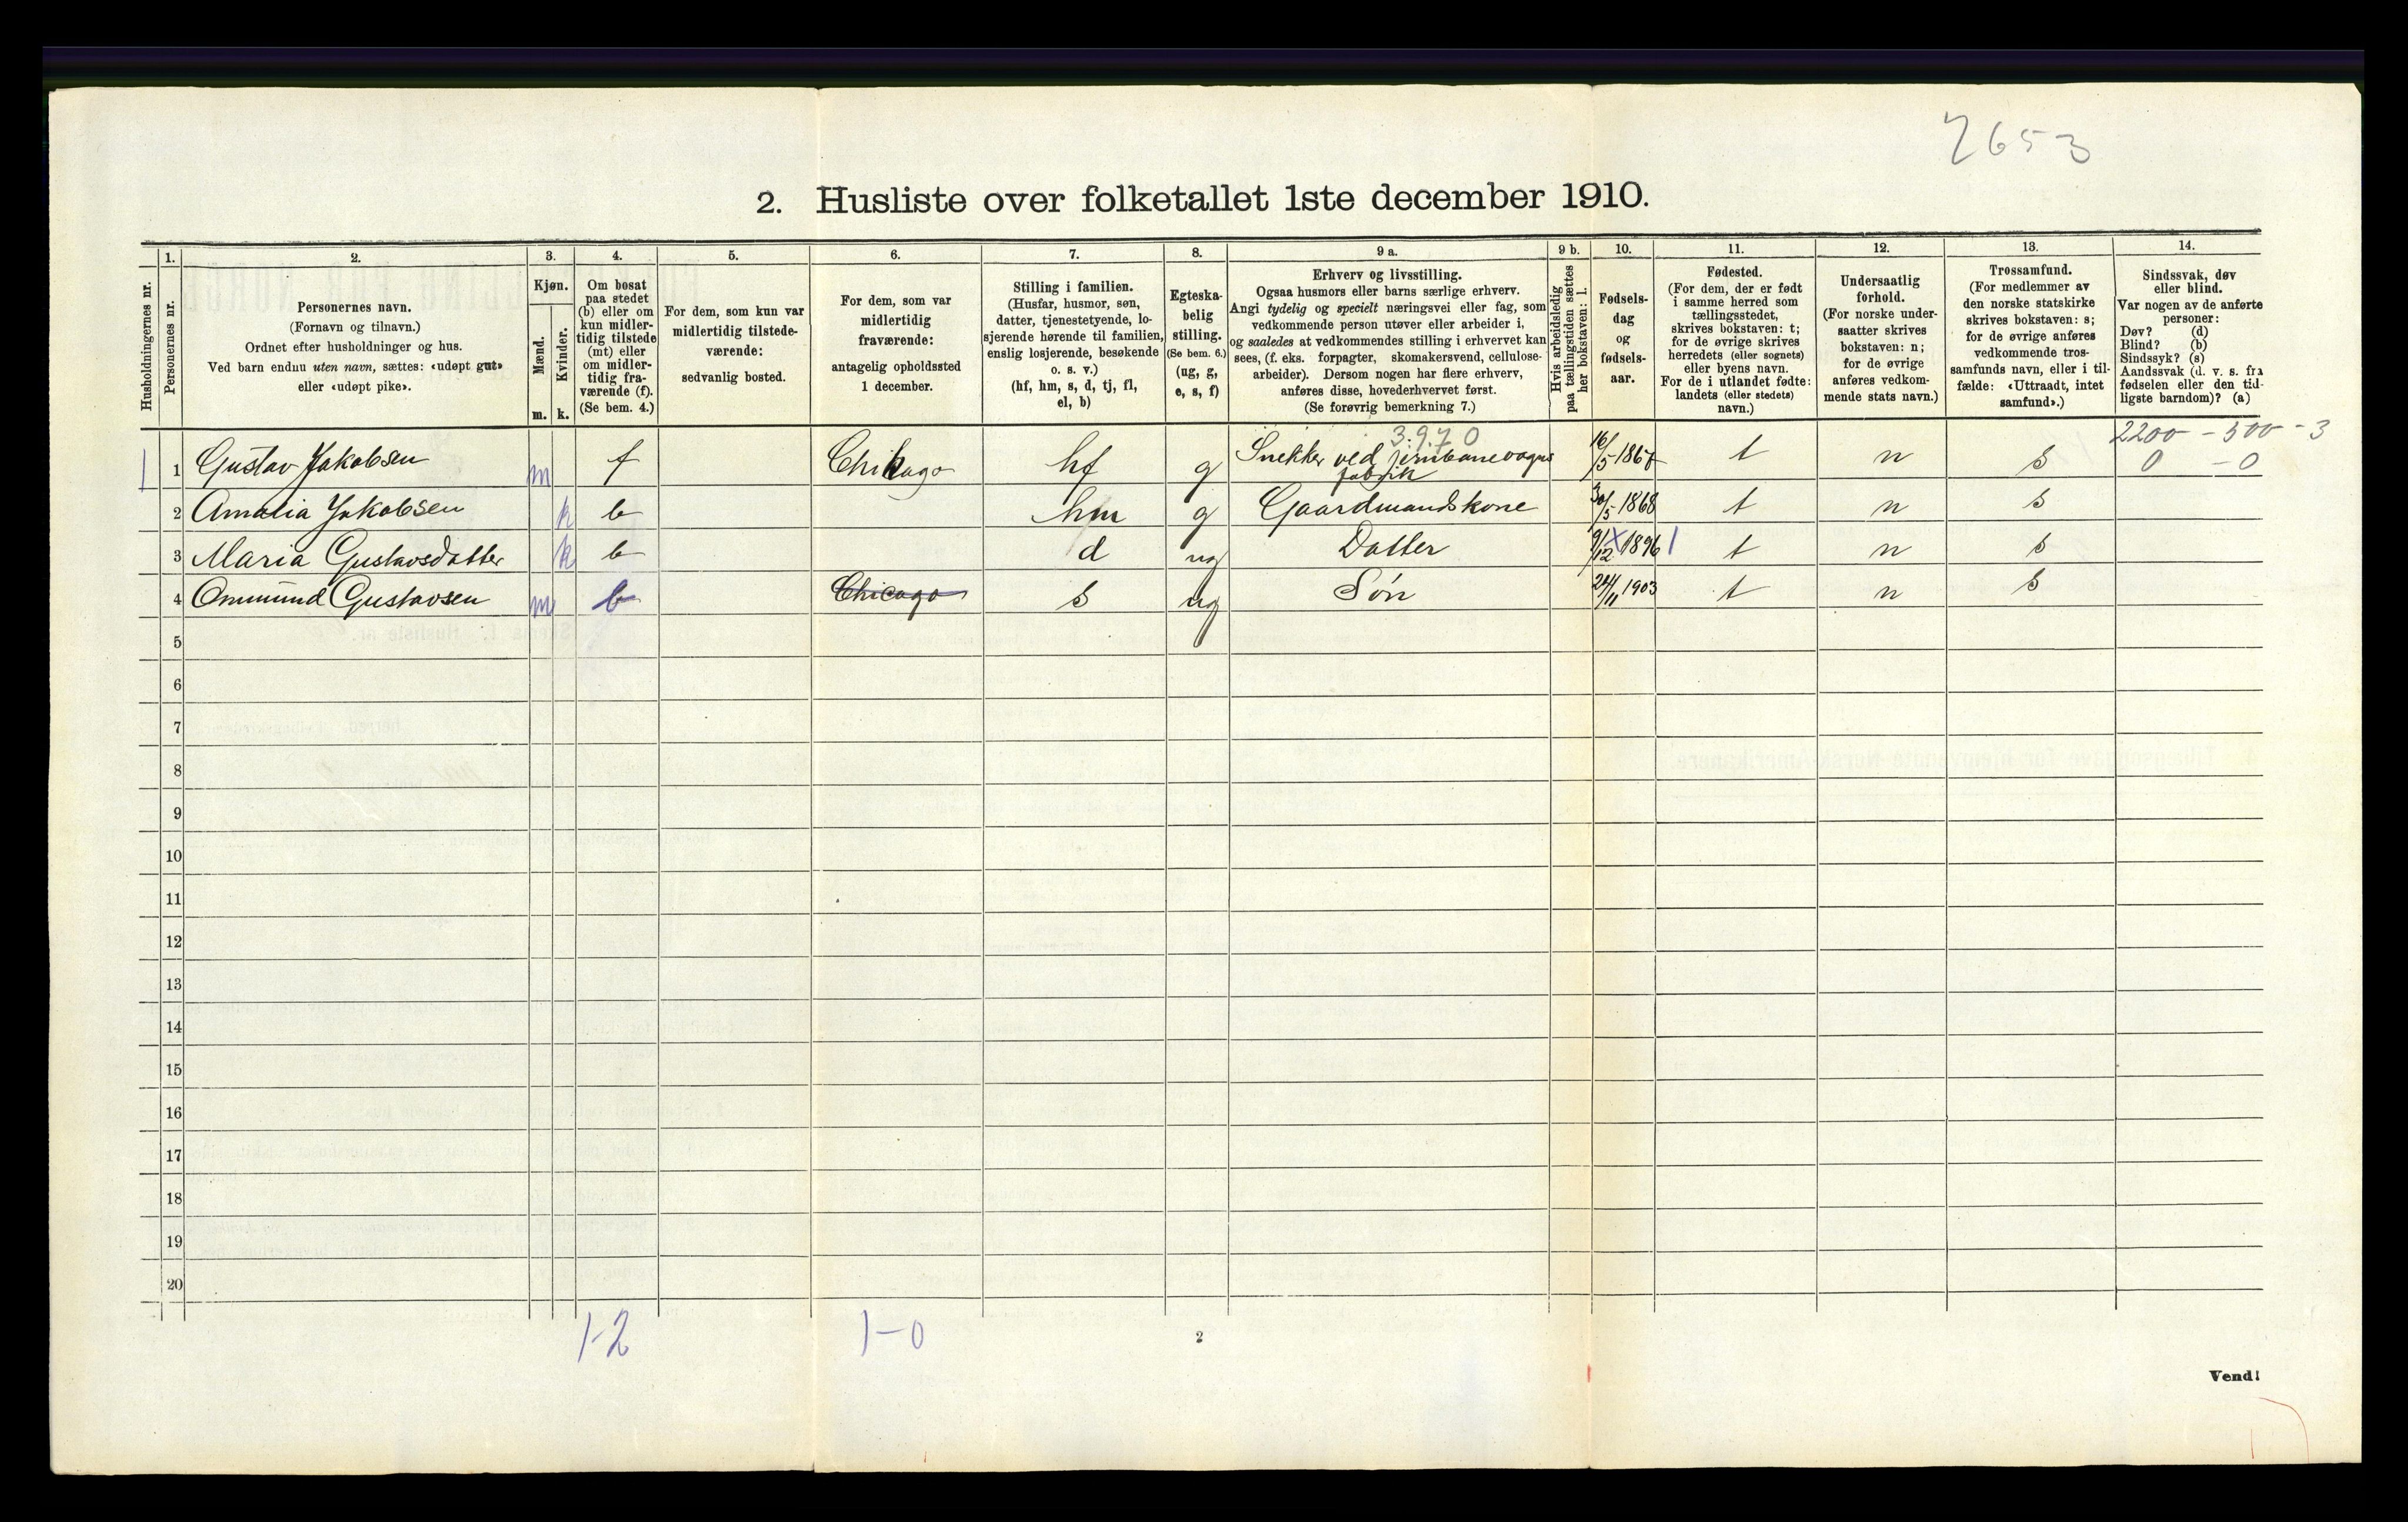 2653
2. Husliste over folketallet 1ste december 1910.
Husholdningernes nr.
1.
Personernes nr.
2.
Personernes navn.
(Fornavn og tilnavn.)
Ordnet efter husholdninger og hus.
Ved barn endnu uten navn, sættes: «udøpt gut»
eller «udøpt pike».
3.
Kjøn.
Mænd.
Kvinder.
m. k.
4.
Om bosat
paa stedet
(b) eller om
kun midler-
tidig tilstede
(mt) eller
om midler-
tidig fra-
værende (f).
(Se bem. 4.)
5.
For dem, som kun var
midlertidig tilstede-
værende:
sedvanlig bosted.
6.
For dem, som var
midlertidig
fraværende:
antagelig opholdssted
1 december.
7.
Stilling i familien.
(Husfar, husmor, søn,
datter, tjenestetyende, lo-
sjerende hørende til familien,
enslig losjerende, besøkende
o. s. v.)
(hf, hm, s, d, tj, fl,
el, b)
8.
Egteska-
belig
stilling.
(Se bem. 6.)
(ug, g,
e, s, f)
9 a.
Erhverv og livsstilling.
Ogsaa husmors eller barns særlige erhverv.
Angi tydelig og specielt næringsvei eller fag, som
vedkommende person utøver eller arbeider i,
og saaledes at vedkommendes stilling i erhvervet kan
sees, (f. eks. forpagter, skomakersvend, cellulose-
arbeider). Dersom nogen har flere erhverv,
anføres disse, hovederhvervet først.
(Se forøvrig bemerkning 7.)
9 b.
Hvis arbeidsledig
paa tællingstiden sættes
her bokstaven: l.
10.
Fødsels-
dag
og
fødsels-
aar.
11.
Fødested.
(For dem, der er født
i samme herred som
tællingsstedet,
skrives bokstaven: t;
for de øvrige skrives
herredets (eller sognets)
eller byens navn.
For de i utlandet fødte:
landets (eller stedets)
navn.)
12.
Undersaatlig
forhold.
(For norske under-
saatter skrives
bokstaven: n;
for de øvrige
anføres vedkom-
mende stats navn.)
13.
Trossamfund.
(For medlemmer av
den norske statskirke
skrives bokstaven: s;
for de øvrige anføres
vedkommende tros-
samfunds navn, eller i til-
fælde: «Uttraadt, intet
samfund».)
14.
Sindssvak, døv
eller blind.
Var nogen av de anførte
personer:
Døv? (d)
Blind? (b)
Sindssyk? (s)
Aandssvak (d. v. s. fra
fødselen eller den tid-
ligste barndom)? (a)
3.9.7 0
2200 - 500 - 3
1 1 Gustav Jakobsen m f Chikago hf g Snekker ved jernbanevogns fabrik 16/5 1867 t n s 0 - 0
2 Amalia Jakobsen k b hm g Gaardmandskone 30/5 1868 t n s
3 Maria Gustavsdatter k b d ug Datter 9/12 1896 t n s
4 Ommund Gustavsen m b Chicago s ug Søn 24/11 1903 t n s
5
6
7
8
9
10
11
12
13
14
15
16
17
18
19
20
1-2 1-0
2
Vend!